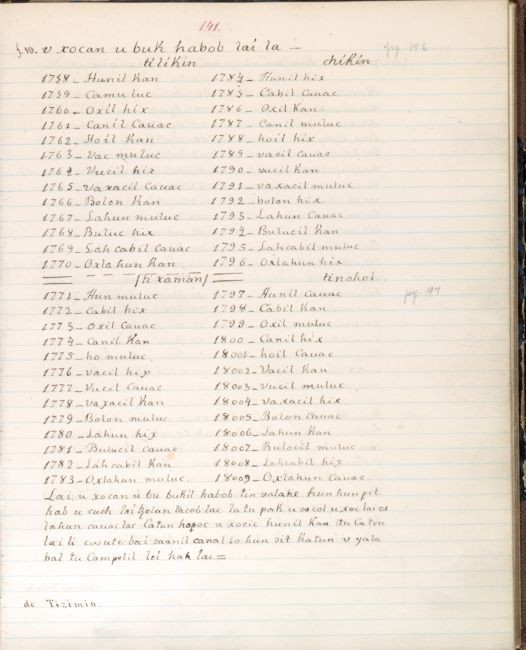 141.
f. 19. v xocan u buk habob lai la — pg. 186
tilikin chikin
1758 - Hunil Kan 1784 - Hunil hix
1759 - Camuluc 1785 - Cabil Cauac
1760 - Oxil hix 1786 - Oxil Kan
1761 - Canil Cauac 1787 - Canil muluc
1762 - Hoil Kan 1788 - hoil hix
1763 - Vac muluc 1789 - vacil cauac
1764 - Vucil hix 1790 - vucil kan
1765 - Vaxacil Cauac 1791 - vaxacil muluc
1766 - Bolon Kan 1792 - bolon hix
1767 - Lahun muluc 1793 - Lahun Cauac
1768 - Buluc hix 1794 - Bulucil Kan
1769 - Lahcabil Cauac 1795 - Lahcabil muluc
1770 - Oxlahun Kan 1796 - Oxlahun hix
[ti xaman] tinohol
1771 - Hun muluc 1797 - Hunil Cauac pg. 197
1772 - Cabil hix 1798 - Cabil Kan
1773 - Oxil Cauac 1799 - Oxil muluc
1774 - Canil Kan 1800 - Canil hix
1775 - ho muluc 18001 - hoil Cauac
1776 - vacil hix 18002 - Vacil Kan
1777 - Vucil Cauac 18003 - Vucil muluc
1778 - vaxacil Kan 18004 - vaxacil hix
1779 - Bolon muluc 18005 - Bolon Cauac
1780 - Lahun hix 18006 - Lahun Kan
1781 - Bulucil Cauac 18007 - Bulucil muluc
1782 - Lahcabil Kan 18008 - Lahcabil hix
1783 - Oxlahun muluc 18009 - Oxlahun Cauac
Lai u xocan u bu bukil habob tin valake hunhunpil
hab u cuch lae u tu pak u xocol u xoc
lahun cauac lae Catun hopoc u xocic hunil Kan tu Caten
lai li canal lo hun sit Katun v yala
bal tu Campelil lei hah lae =
de Tizimin.